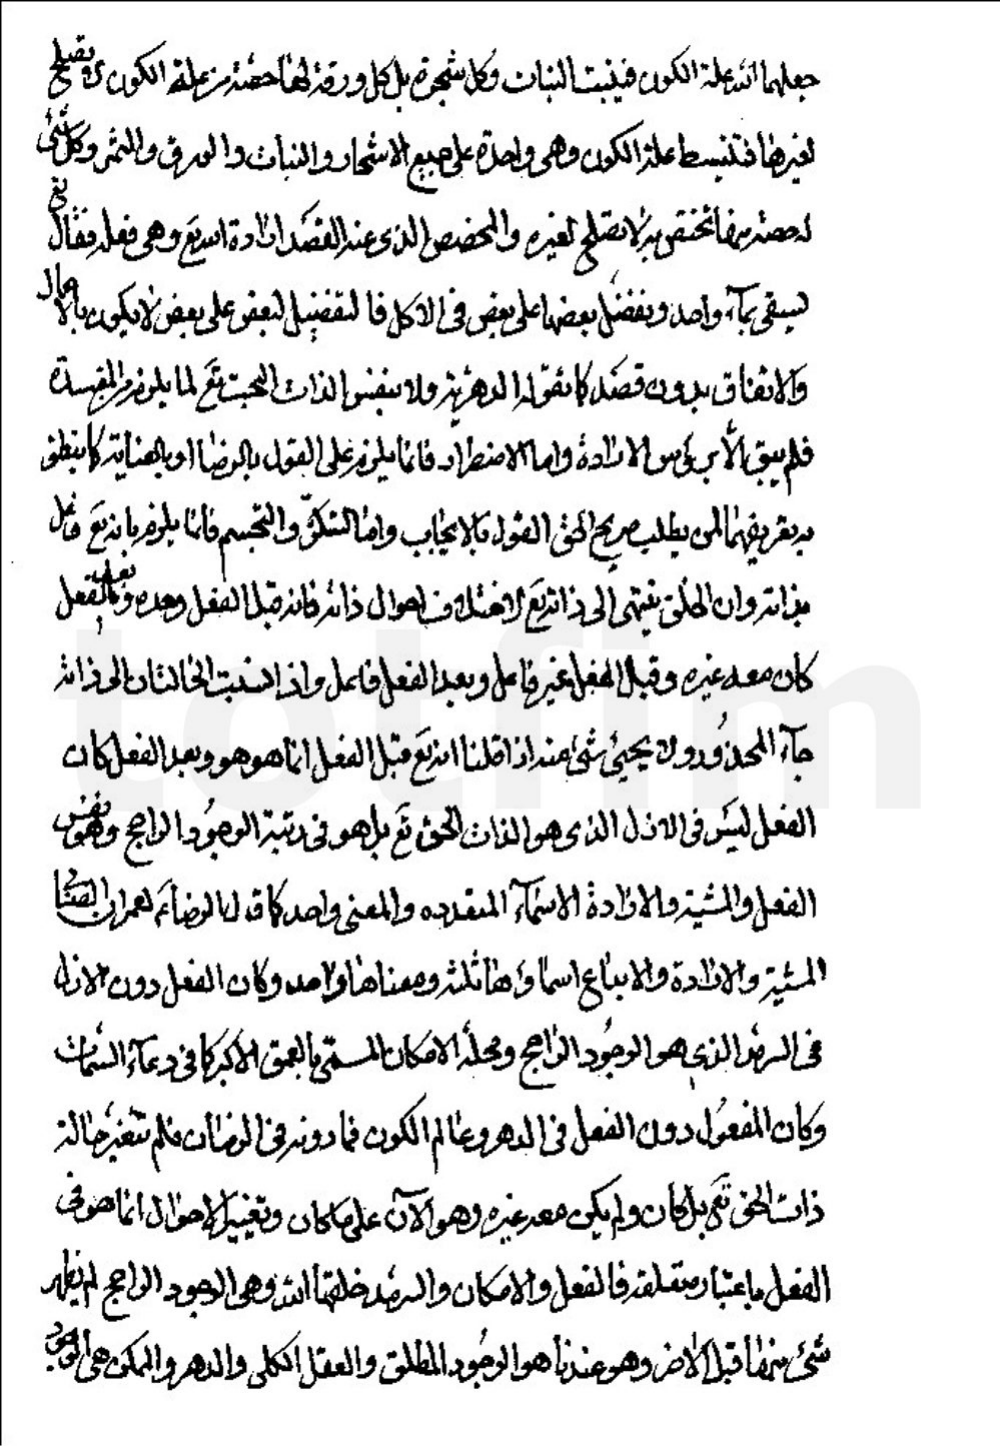 جعلهما الله علة الكون فينبت النبات وكل شجرة بل كل ورقة لها حصة من علة الكون لا يصلح
لغيرها فتنبسط علة الكون وهى واحدة على جميع الاشجار والنبات والورق والثمر وكل شئ
له حصة منها تختص به لا تصلح لغيره والمخصص الذى عنه القصد ارادة الله تع وهى فعله فقال تع
يسقى بمآء واحد ونفضل بعضها على بعض فى الاكل فالتفضيل لبعض على بعض لا يكون بالاهمال
والاتفاق بدون قصد كما تقوله الدهرية ولا بنفس الذات البحت تع لما يلزم من المفسدة
فلم يبق الا بر الارادة واما الاضطرار فانما يلزم على القول بالرضا او بالعناية كما ينطق
به تعريفهما لمن يطلب صريح الحق القول بالايجاب واما التكثر والتجسم فانما يلزم بانه تع فاعل
بذاته وان الخلق ينتهى الى ذاته تع لاختلاف احوال ذاته فانه قبل الفعل وحده وبعد الفعل
كان معه غيره وقبل الفعل غير فاعل وبعد الفعل فاعل واذا انسبت الحالتان الى ذاته
جآء المحذور ولا يجيئ شئ منه اذا قلنا انه تع قبل الفعل انما هو هو وبعد الفعل كان
الفعل ليس فى الازل الذى هو الذات الحق تع بل هو فى رتبة الوجود الراجح وهو نفس
الفعل والمشية والارادة الاسمآء المتعدده والمعنى واحد كما قال الرضا ع لعمران الصابى
المشية والارادة والابداع اسماؤها ثلثة ومعناها واحد وكان الفعل دون الازل
فى السرمد الذى هو الوجود الراجح ومحله الامكان المسمى بالعمق الاكبر كما فى دعآء السمات
وكان المفعول دون الفعل فى الدهر وعالم الكون فما دونه فى الزمان فلم تتغير حالة
ذات الحق تع بل كان ولم يكن معه غيره وهو الآن على ما كان وتغيير الاحوال انما هو فى
الفعل باعتبار متعلقه فالفعل والامكان والسرمد خلقها الله وهى الوجود الراجح لم يظهر
شئ منها قبل الاخر وهو عندنا هو الوجود المطلق والعقل الكلى والدهر والممكن هى الوجود